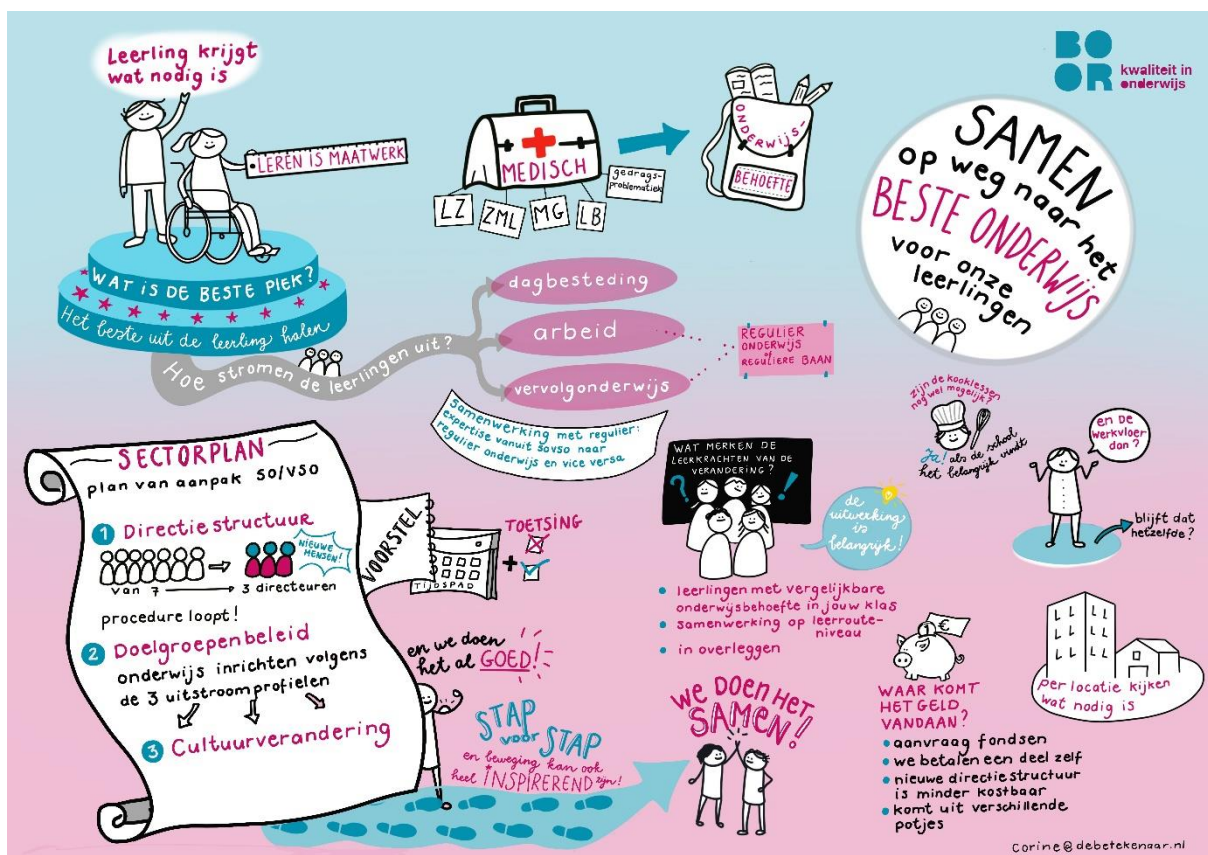 Leerling krijgt
wat nodig is
LEREN IS MAATWERK
WAT IS DE BESTE PLEK?
Het beste uit de leerling halen
MEDISCH
LZ
ZML
MG
LB
gedrags-
problematiek
ONDERWIJS-
BEHOEFTE
BO
OR
kwaliteit in
onderwijs
SAMEN
op weg naar het
BESTE ONDERWIJS
voor onze
leerlingen
Hoe stromen de leerlingen uit?
dagbesteding
arbeid
vervolgonderwijs
REGULIER
ONDERWIJS
of
REGULIERE BAAN
Samenwerking met regulier:
expertise vanuit sovso naar
regulier onderwijs en vice versa
SECTORPLAN
plan van aanpak SO/VSO
1 Directiestructuur
NIEUWE
MENSEN!
van 7 3 directeuren
procedure loopt!
2 Doelgroepenbeleid
onderwijs inrichten volgens
de 3 uitstroomprofielen
3 Cultuurverandering
VOORSTEL
TIJDSPAD
+
TOETSING
en we doen
het al GOED!
STAP
voor STAP
en beweging kan ook
heel INSPIREREND zijn!
WAT MERKEN DE
LEERKRACHTEN VAN DE
VERANDERING?
? !
de
uitwerking
is
belangrijk!
• leerlingen met vergelijkbare
onderwijsbehoefte in jouw klas
• samenwerking op leerroute-
niveau
• in overleggen
WE DOEN HET
SAMEN!
zijn de kooklessen
nog wel mogelijk?
Ja! als de school
het belangrijk vindt
en De
werkvloer
dan?
blijft dat
hetzelfde?
1 €
WAAR KOMT
HET GELD
VANDAAN?
• aanvraag fondsen
• we betalen een deel zelf
• nieuwe directiestructuur
is minder kostbaar
• komt uit verschillende
potjes
per locatie kijken
wat nodig is
Corine@debetekenaar.nl